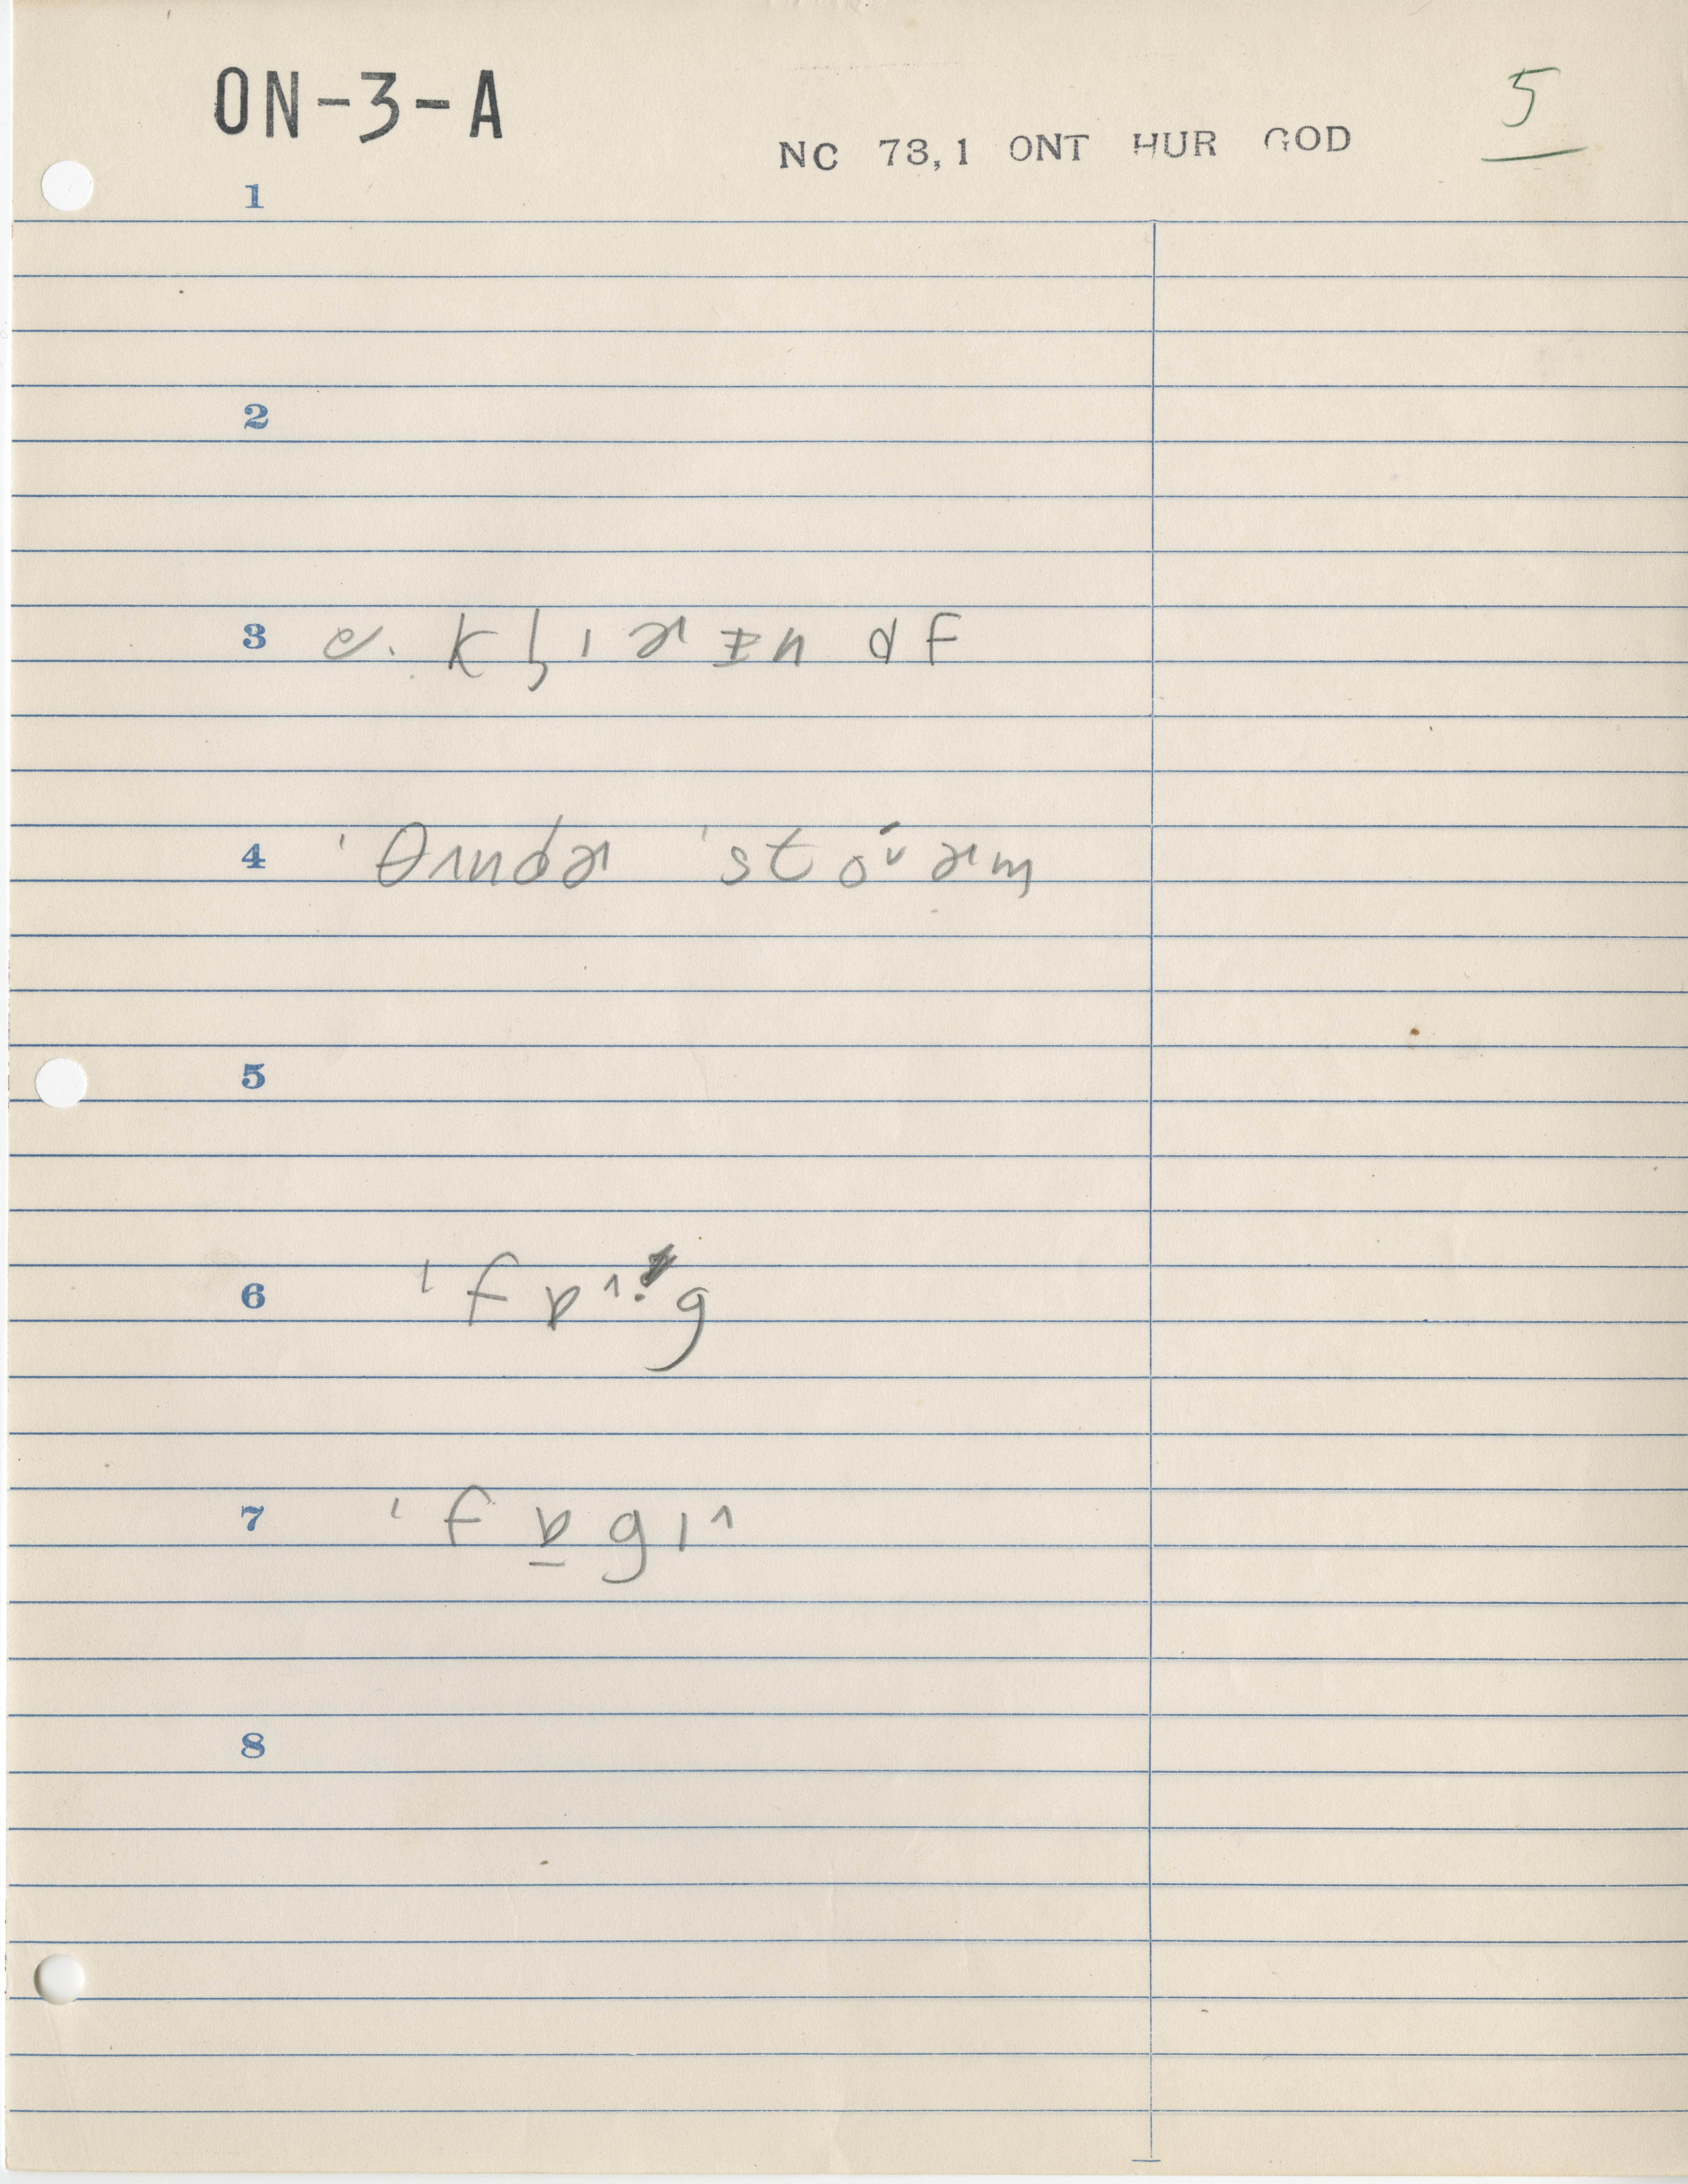 ON-3-A
NC 73,1 ONT HUR GOD
5
1
2
3 c. kl̥ɪɚɪn ɑf
4 ˈθʌndɚ ˈstoˇɚm
5
6 ˈfɒ^·g
7 ˈfɒ̱gɪ^
8